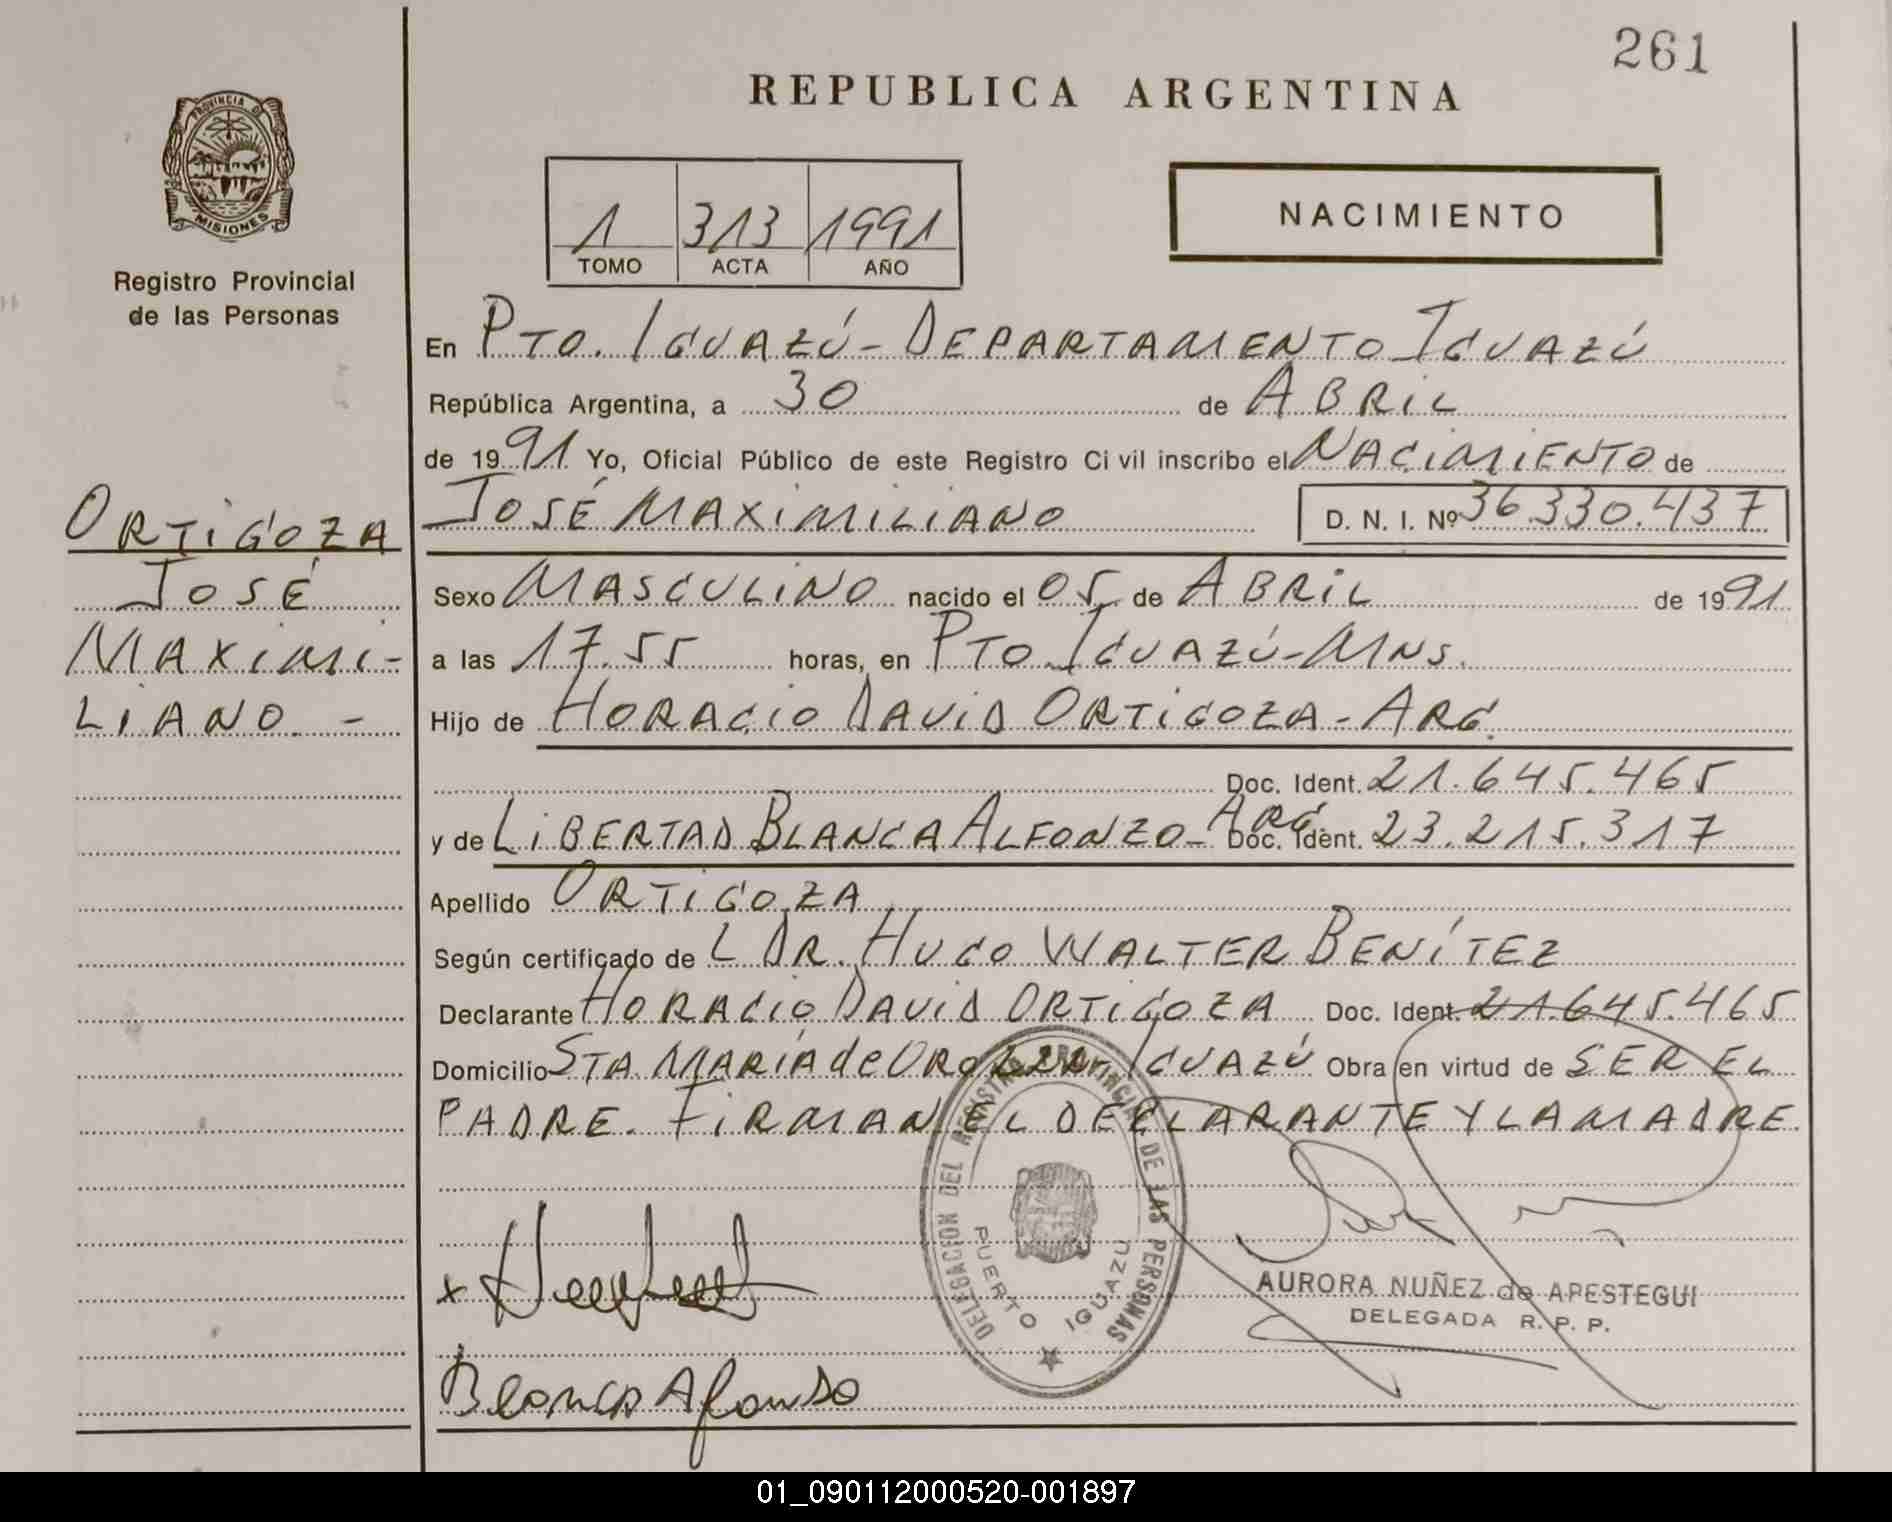 261
REPUBLICA ARGENTINA
PROVINCIA DE
MISIONES
Registro Provincial
de las Personas
1 313 1991
TOMO ACTA AÑO
NACIMIENTO
En PTO. IGUAZÚ - DEPARTAMENTO IGUAZÚ
República Argentina, a 30 de ABRIL
de 1991 Yo, Oficial Público de este Registro Civil inscribo el NACIMIENTO de
JOSÉ MAXIMILIANO D. N. I. Nº 36.330.437
ORTIGOZA
JOSÉ
MAXIMI-
LIANO. -
Sexo MASCULINO nacido el 05 de ABRIL de 1991
a las 17.55 horas, en PTO. IGUAZÚ - MNS.
Hijo de HORACIO DAVID ORTIGOZA - ARG.
Doc. Ident. 21.645.465
y de LIBERTAD BLANCA ALFONZO - ARG. Doc. Ident. 23.215.317
Apellido ORTIGOZA
Según certificado de L DR. HUGO WALTER BENÍTEZ
Declarante HORACIO DAVID ORTIGOZA Doc. Ident. 21.645.465
Domicilio STA MARÍA de ORO IGUAZÚ Obra en virtud de SER EL
PADRE. FIRMAN EL DECLARANTE Y LA MADRE.
DELEGACION DEL REGISTRO PROVINCIAL DE LAS PERSONAS
PUERTO IGUAZU
x
AURORA NUÑEZ de APESTEGUI
DELEGADA R. P. P.
Blanca Afonso
01_090112000520-001897